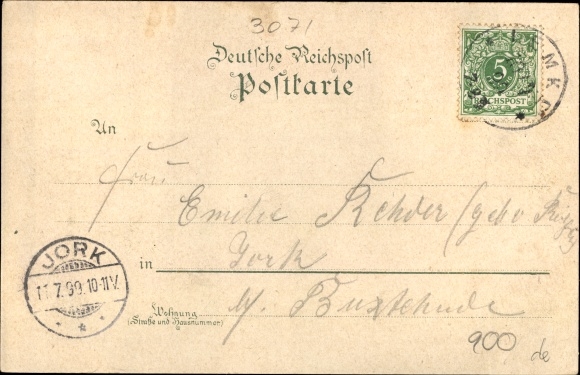 3071
Deutsche Reichspost
Postkarte
5
REICHSPOST
An
Frau
Emilie Rehder (geb.
Jork
in
JORK
11.7.99.10-11V.
b. Buxtehude
Wohnung
(Straße und Hausnummer)
900
de